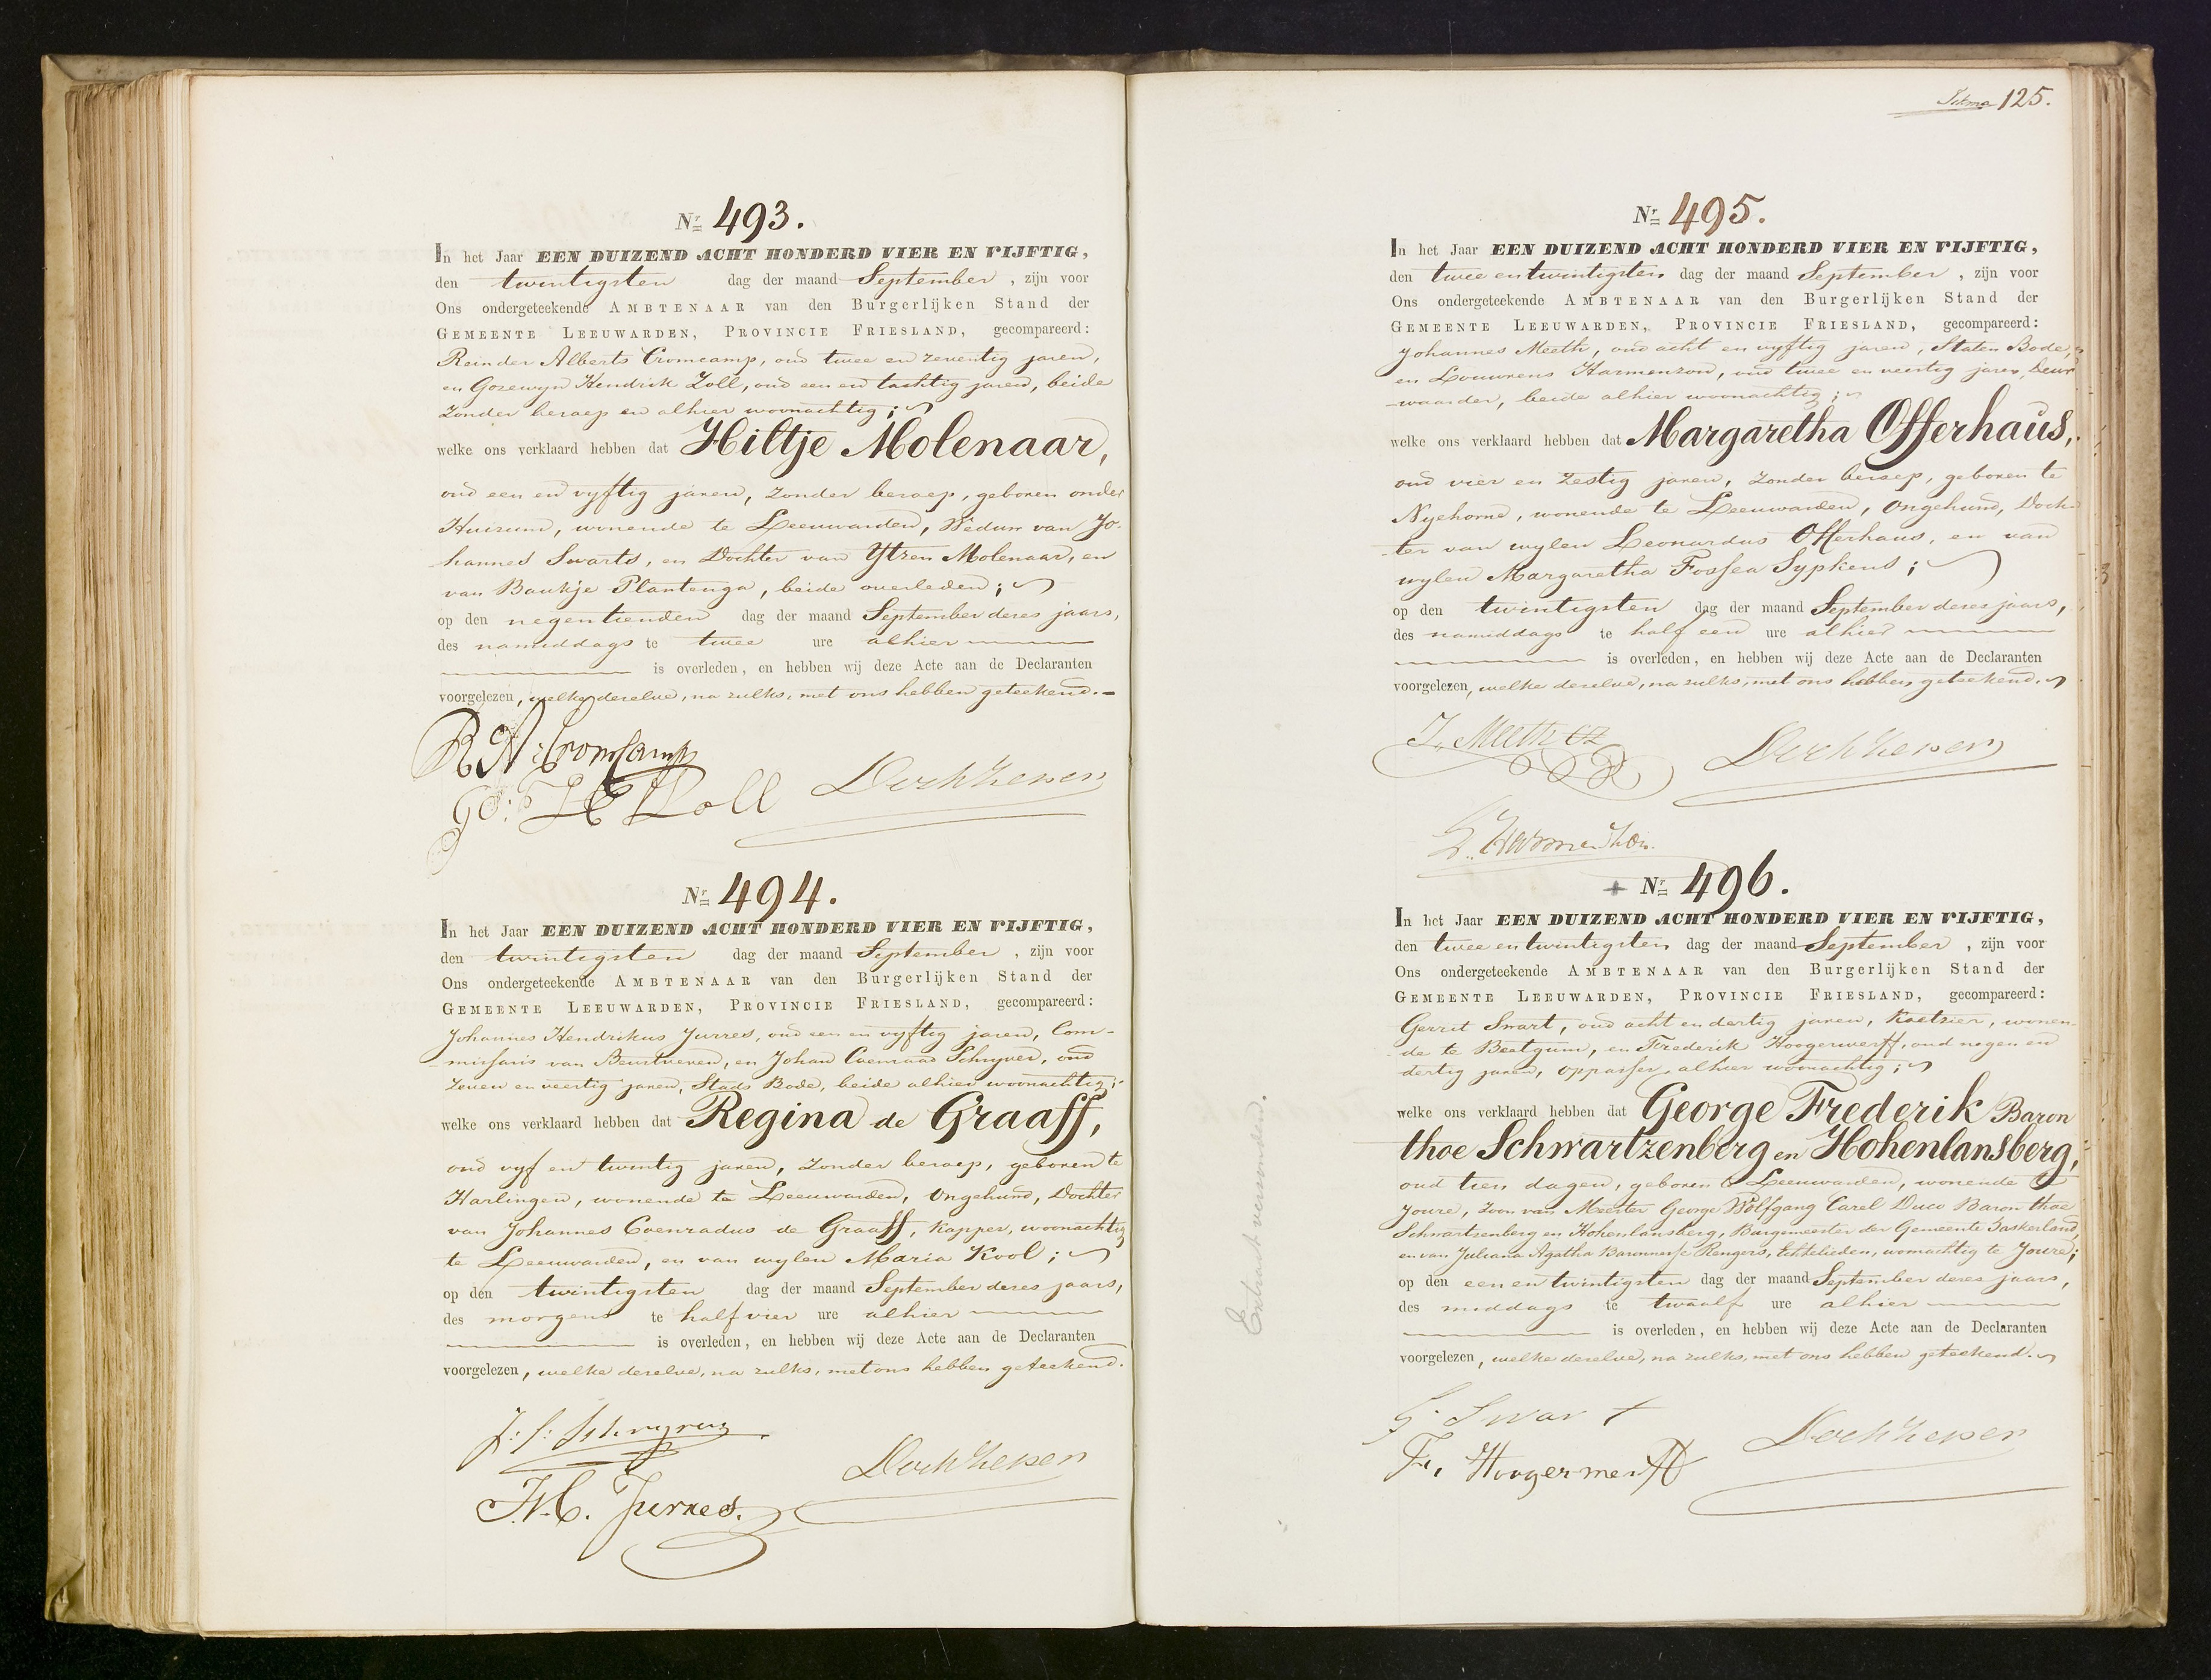 Nr 493.
In het Jaar EEN DUIZEND ACHT HONDERD VIER EN VIJFTIG,
den twintigsten dag der maand September, zijn voor
Ons ondergeteekende AMBTENAAR van den Burgerlijken Stand der
GEMEENTE LEEUWARDEN, PROVINCIE FRIESLAND, gecompareerd:
Reinder Alberts Cromcamp, oud twee en zeventig jaren,
en Gozewyn Hendrik Zoll, oud een en tachtig jaren, beide
zonder beroep en alhier woonachtig;
welke ons verklaard hebben dat Hiltje Molenaar,
oud een en vyftig jaren, zonder beroep, geboren onder
Huizum, wonende te Leeuwarden, Weduw van Jo-
hannes Swarts, en Dochter van Ytzen Molenaar, en
van Baukje Plantenga, beide overleden;
op den negentienden dag der maand September dezes jaars,
des namiddags te twee ure alhier
is overleden, en hebben wij deze Acte aan de Declaranten
voorgelezen, welke dezelve, na zulks, met ons hebben geteekend.
R A: Cromcamp
Go: H Zoll
Nr 494.
In het Jaar EEN DUIZEND ACHT HONDERD VIER EN VIJFTIG,
den twintigsten dag der maand September, zijn voor
Ons ondergeteekende AMBTENAAR van den Burgerlijken Stand der
GEMEENTE LEEUWARDEN, PROVINCIE FRIESLAND, gecompareerd:
Johannes Hendrikus Jurres, oud een en vyftig jaren, Com-
missaris van Beurtveren, en Johan Coenraad Schryver, oud
zeven en veertig jaren, Stads Bode, beide alhier woonachtig;
welke ons verklaard hebben dat Regina de Graaff,
oud vyf en twintig jaren, zonder beroep, geboren te
Harlingen, wonende te Leeuwarden, Ongehuwd, Dochter
van Johannes Coenradus de Graaff, Kapper, woonachtig
te Leeuwarden, en van wylen Maria Kool;
op den twintigsten dag der maand September dezes jaars,
des morgens te half vier ure alhier
is overleden, en hebben wij deze Acte aan de Declaranten
voorgelezen, welke dezelve, na zulks, met ons hebben geteekend.
J. H. Jurres.
125.
Nr 495.
In het Jaar EEN DUIZEND ACHT HONDERD VIER EN VIJFTIG,
den twee en twintigsten dag der maand September, zijn voor
Ons ondergeteekende AMBTENAAR van den Burgerlijken Stand der
GEMEENTE LEEUWARDEN, PROVINCIE FRIESLAND, gecompareerd:
Johannes Meeth, oud acht en vyftig jaren, Staten Bode,
en Louwrens Harmenzon, oud twee en veertig jaren, Deur-
waarder, beide alhier woonachtig;
welke ons verklaard hebben dat Margaretha Offerhaus,
oud vier en zestig jaren, zonder beroep, geboren te
Nyehorne, wonende te Leeuwarden, Ongehuwd, Doch-
ter van wylen Leonardus Offerhaus, en van
wylen Margaretha Fossea Sypkens;
op den twintigsten dag der maand September dezes jaars,
des namiddags te half een ure alhier
is overleden, en hebben wij deze Acte aan de Declaranten
voorgelezen, welke dezelve, na zulks, met ons hebben geteekend.
J. Meeth
L. Harmenzon.
Nr 496.
In het Jaar EEN DUIZEND ACHT HONDERD VIER EN VIJFTIG,
den twee en twintigsten dag der maand September, zijn voor
Ons ondergeteekende AMBTENAAR van den Burgerlijken Stand der
GEMEENTE LEEUWARDEN, PROVINCIE FRIESLAND, gecompareerd:
Gerrit Swart, oud acht en dertig jaren, Koetsier, wonen-
de te Beetgum, en Frederik Hoogerwerff, oud negen en
dertig jaren, oppasser, alhier woonachtig;
welke ons verklaard hebben dat George Frederik Baron
thoe Schwartzenberg en Hohenlansberg,
oud tien dagen, geboren te Leeuwarden, wonende te
Joure, Zoon van Meester George Wolfgang Carel Duco Baron thoe
Schwartzenberg en Hohenlansberg, Burgemeester der Gemeente Haskerland,
en van Juliana Agatha Baronnesse Rengers, Echtelieden, woonachtig te Joure;
op den een en twintigsten dag der maand September dezes jaars,
des middags te twaalf ure alhier
is overleden, en hebben wij deze Acte aan de Declaranten
voorgelezen, welke dezelve, na zulks, met ons hebben geteekend.
G. Swart
Fr. Hoogerwerff
Extract verzonden.